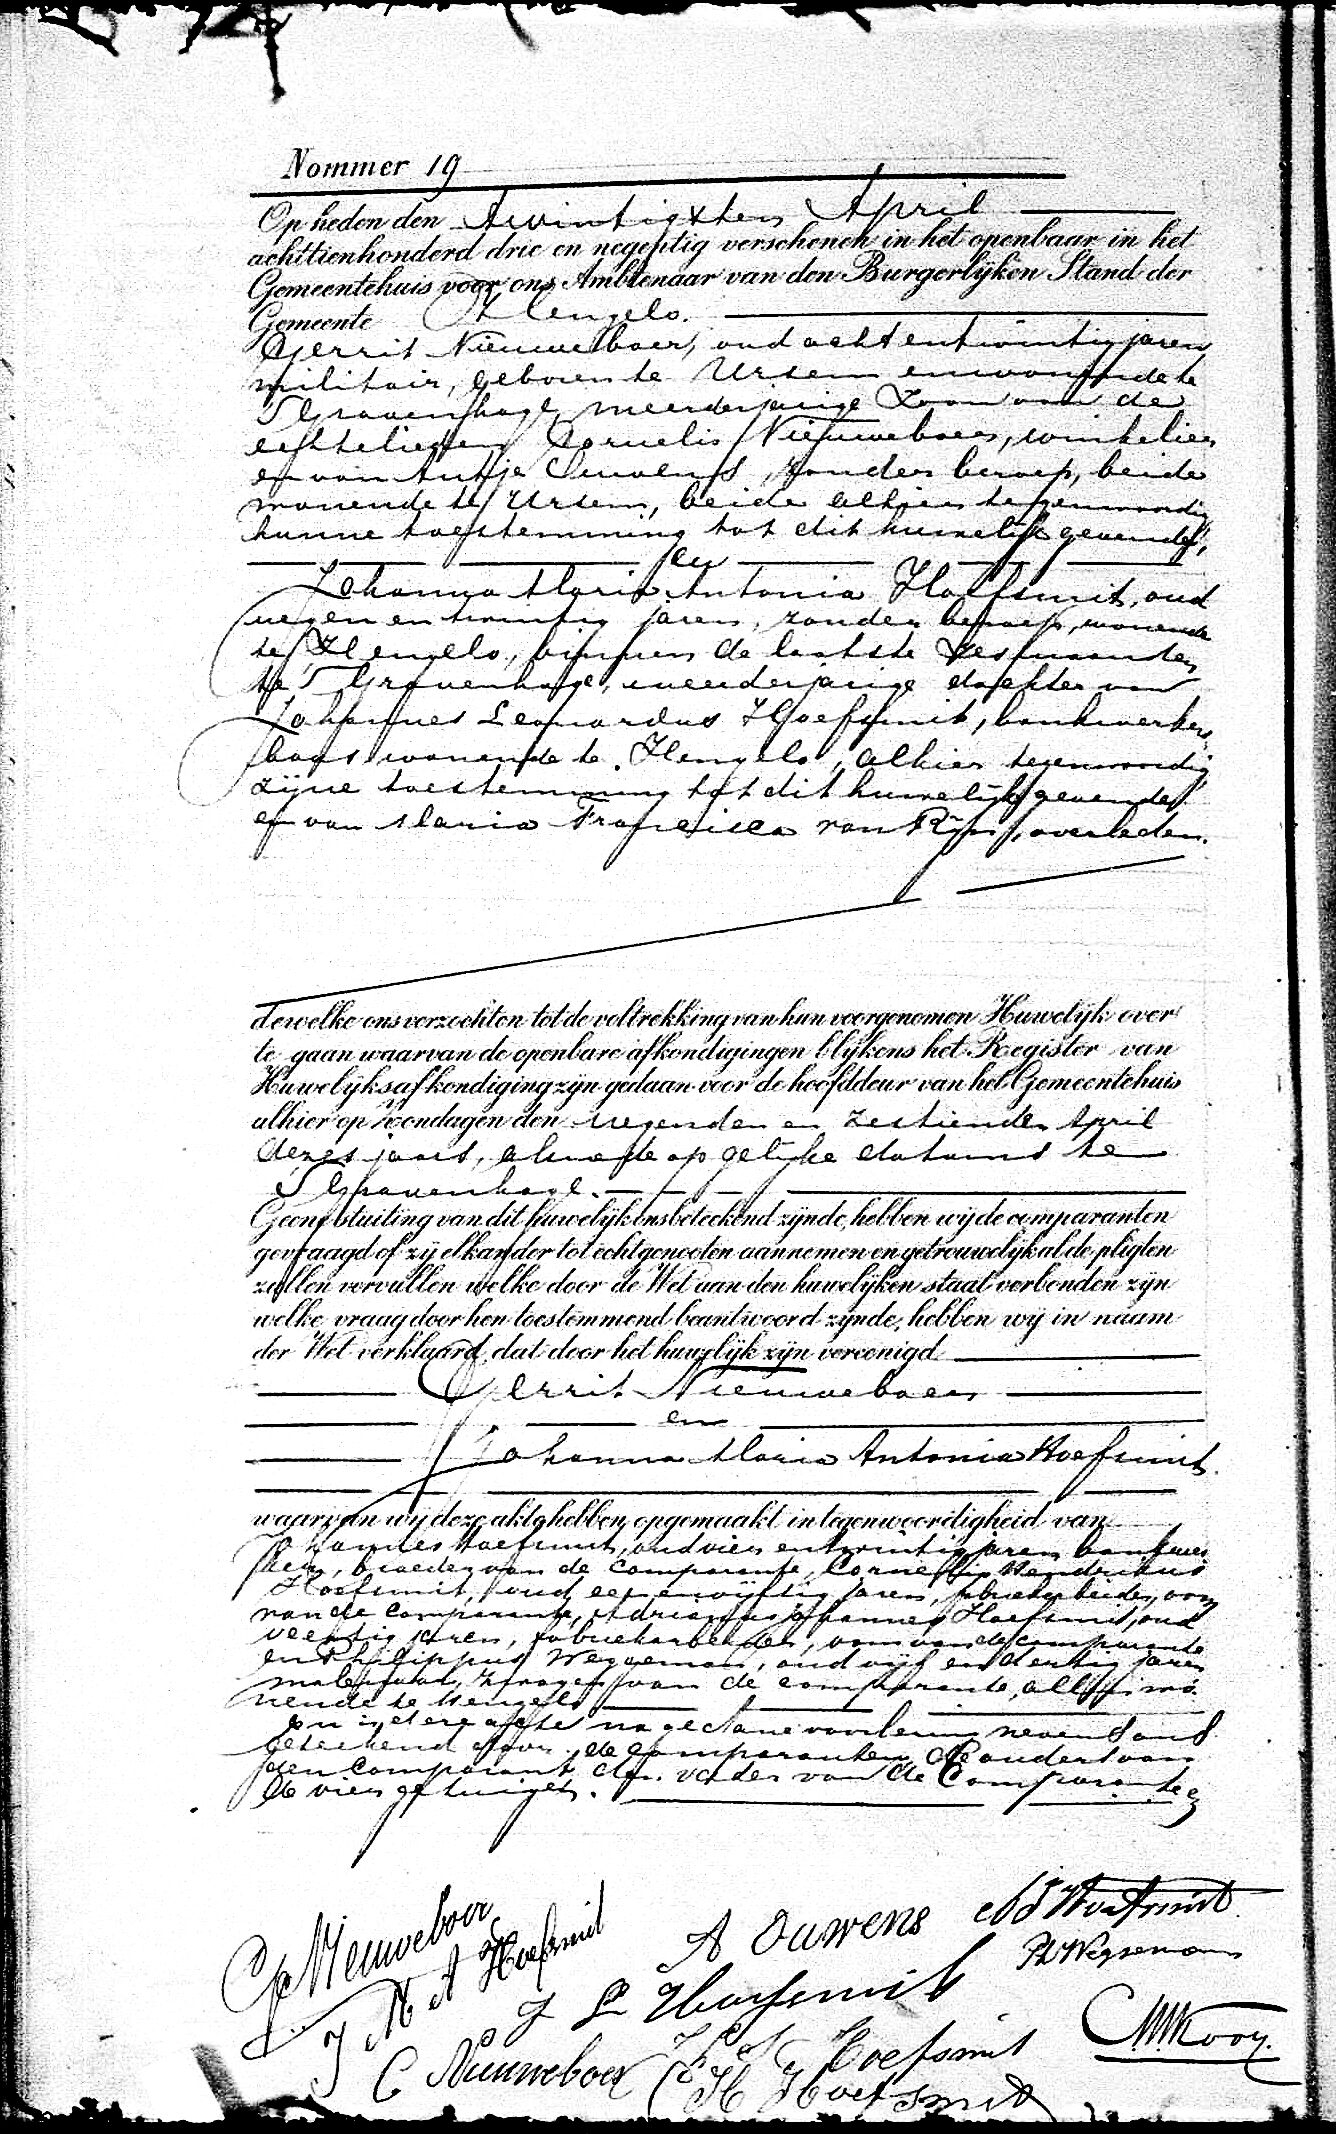 Nommer 19
Op heden den twintigsten April
achttienhonderd drie en negentig verschenen in het openbaar in het
Gemeentehuis voor ons Ambtenaar van den Burgerlijken Stand der
Gemeente Hengelo.
Gerrit Nieuweboer, oud acht en twintig jaren,
militair, geboren te Ursem en wonende te
'S Gravenhage, meerderjarige zoon van de
echtelieden Cornelis Nieuweboer, winkelier
en van Antje Ouwens, zonder beroep, beide
wonende te Ursem, beide alhier tegenwoordig
hunne toestemming tot dit huwelijk gevende,
en
Johanna Maria Antonia Hoefsmit, oud
negen en twintig jaren, zonder beroep, wonende
te Hengelo, binnen de laatste zes maanden
te 'S Gravenhage, meerderjarige dochter van
Johannes Leonardus Hoefsmit, bankwerkers
baas wonende te Hengelo, alhier tegenwoordig
zijne toestemming tot dit huwelijk gevende
en van Maria Francisca van Rijn, overleden.
dewelke ons verzochten tot de voltrekking van hun voorgenomen Huwelijk over
te gaan waarvan de openbare afkondigingen blijkens het Register van
Huwelijksafkondiging zijn gedaan voor de hoofddeur van het Gemeentehuis
alhier op Zondagen den negenden en zestienden April
dezes jaars, alsmede op gelijke datums te
'S Gravenhage.
Geene stuiting van dit huwelijk ons beteekend zijnde, hebben wij de comparanten
gevraagd of zij elkander tot echtgenooten aannemen en getrouwelijk al de pligten
zullen vervullen welke door de Wet aan den huwelijken staat verbonden zijn
welke vraag door hen toestemmend beantwoord zijnde, hebben wij in naam
der Wet verklaard, dat door het huwelijk zijn vereenigd
Gerrit Nieuweboer
en
Johanna Maria Antonia Hoefsmit.
waarvan wij deze akte hebben opgemaakt in tegenwoordigheid van
Johannes Hoefsmit, oud vier en twintig jaren bankwer
ker, broeder van de comparante, Cornelis Hendrikus
Hoefsmit, oud een en vijftig jaren, fabriekarbeider, oom
van de comparante, Adrianus Johannes Hoefsmit, oud
veertig jaren, fabriekarbeider, oom van de comparante
en Philippus Weggeman, oud vijf en dertig jaren
zwager van de comparante, allen wo
nende te Hengelo
En is deze acte na gedane voorlezing nevens ons
geteekend door de comparanten, de ouders van
den comparant den vader van de Comparante en
de vier getuigen.
G Nieuweboer
J M A Hoefsmit
A Ouwens
A J Hoefsmit
Ph Weggeman
J L Hoefsmit
C Nieuweboer
Hoefsmit
C H Hoefsmit
Kooy.